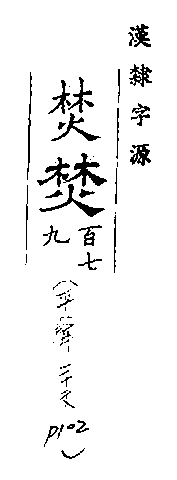 漢隸字源
焚焚
百七
九
(平聲二十文
P102)